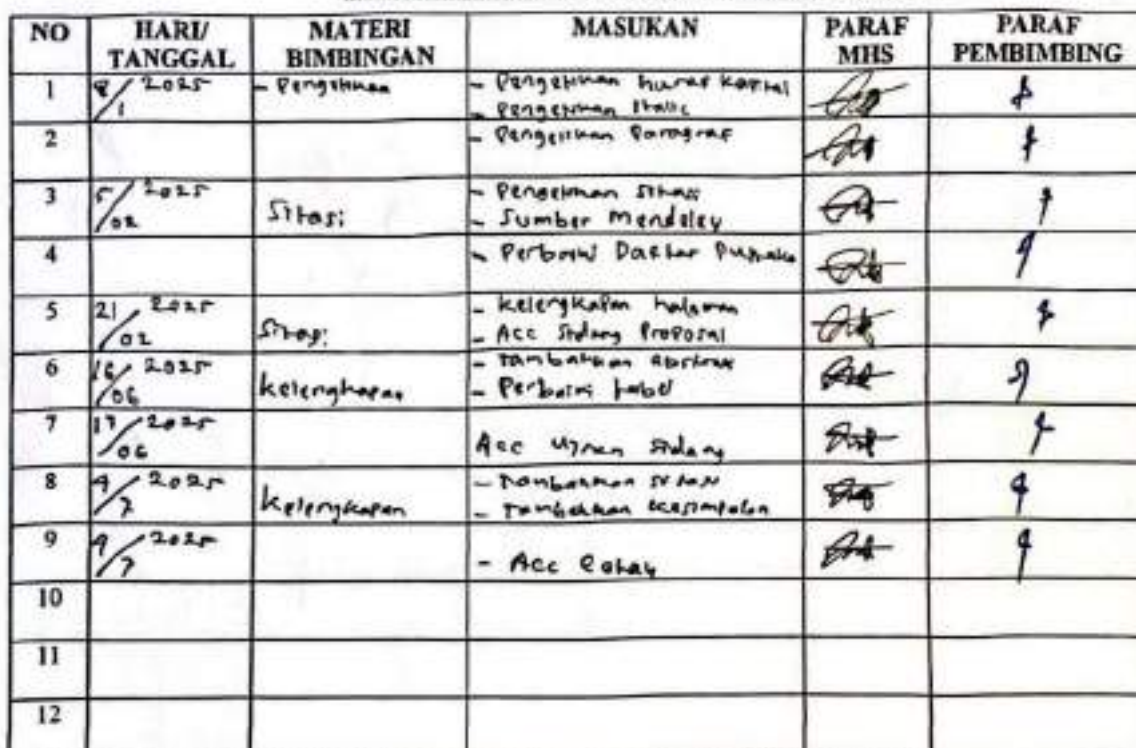 NO HARI/ TANGGAL MATERI BIMBINGAN MASUKAN PARAF MHS PARAF PEMBIMBING
1 8/1 2025 - Pengetikan - Pengetikan huruf kapital
- Pengetikan Italic
2 - Pengetikan Paragraf
3 5/02 2025 Sitasi - Pengetikan Sitasi
- Sumber Mendeley
4 - Perbaiki Daftar Pustaka
5 21/02 2025 Sitasi - Kelengkapan halaman
- Acc Sidang Proposal
6 16/06 2025 Kelengkapan - Tambahkan Abstrak
- Perbaiki tabel
7 17/06 2025 Acc Ujian Sidang
8 9/7 2025 Kelengkapan - Tambahkan
- Tambahkan Kesimpulan
9 9/7 2025 - Acc
10
11
12